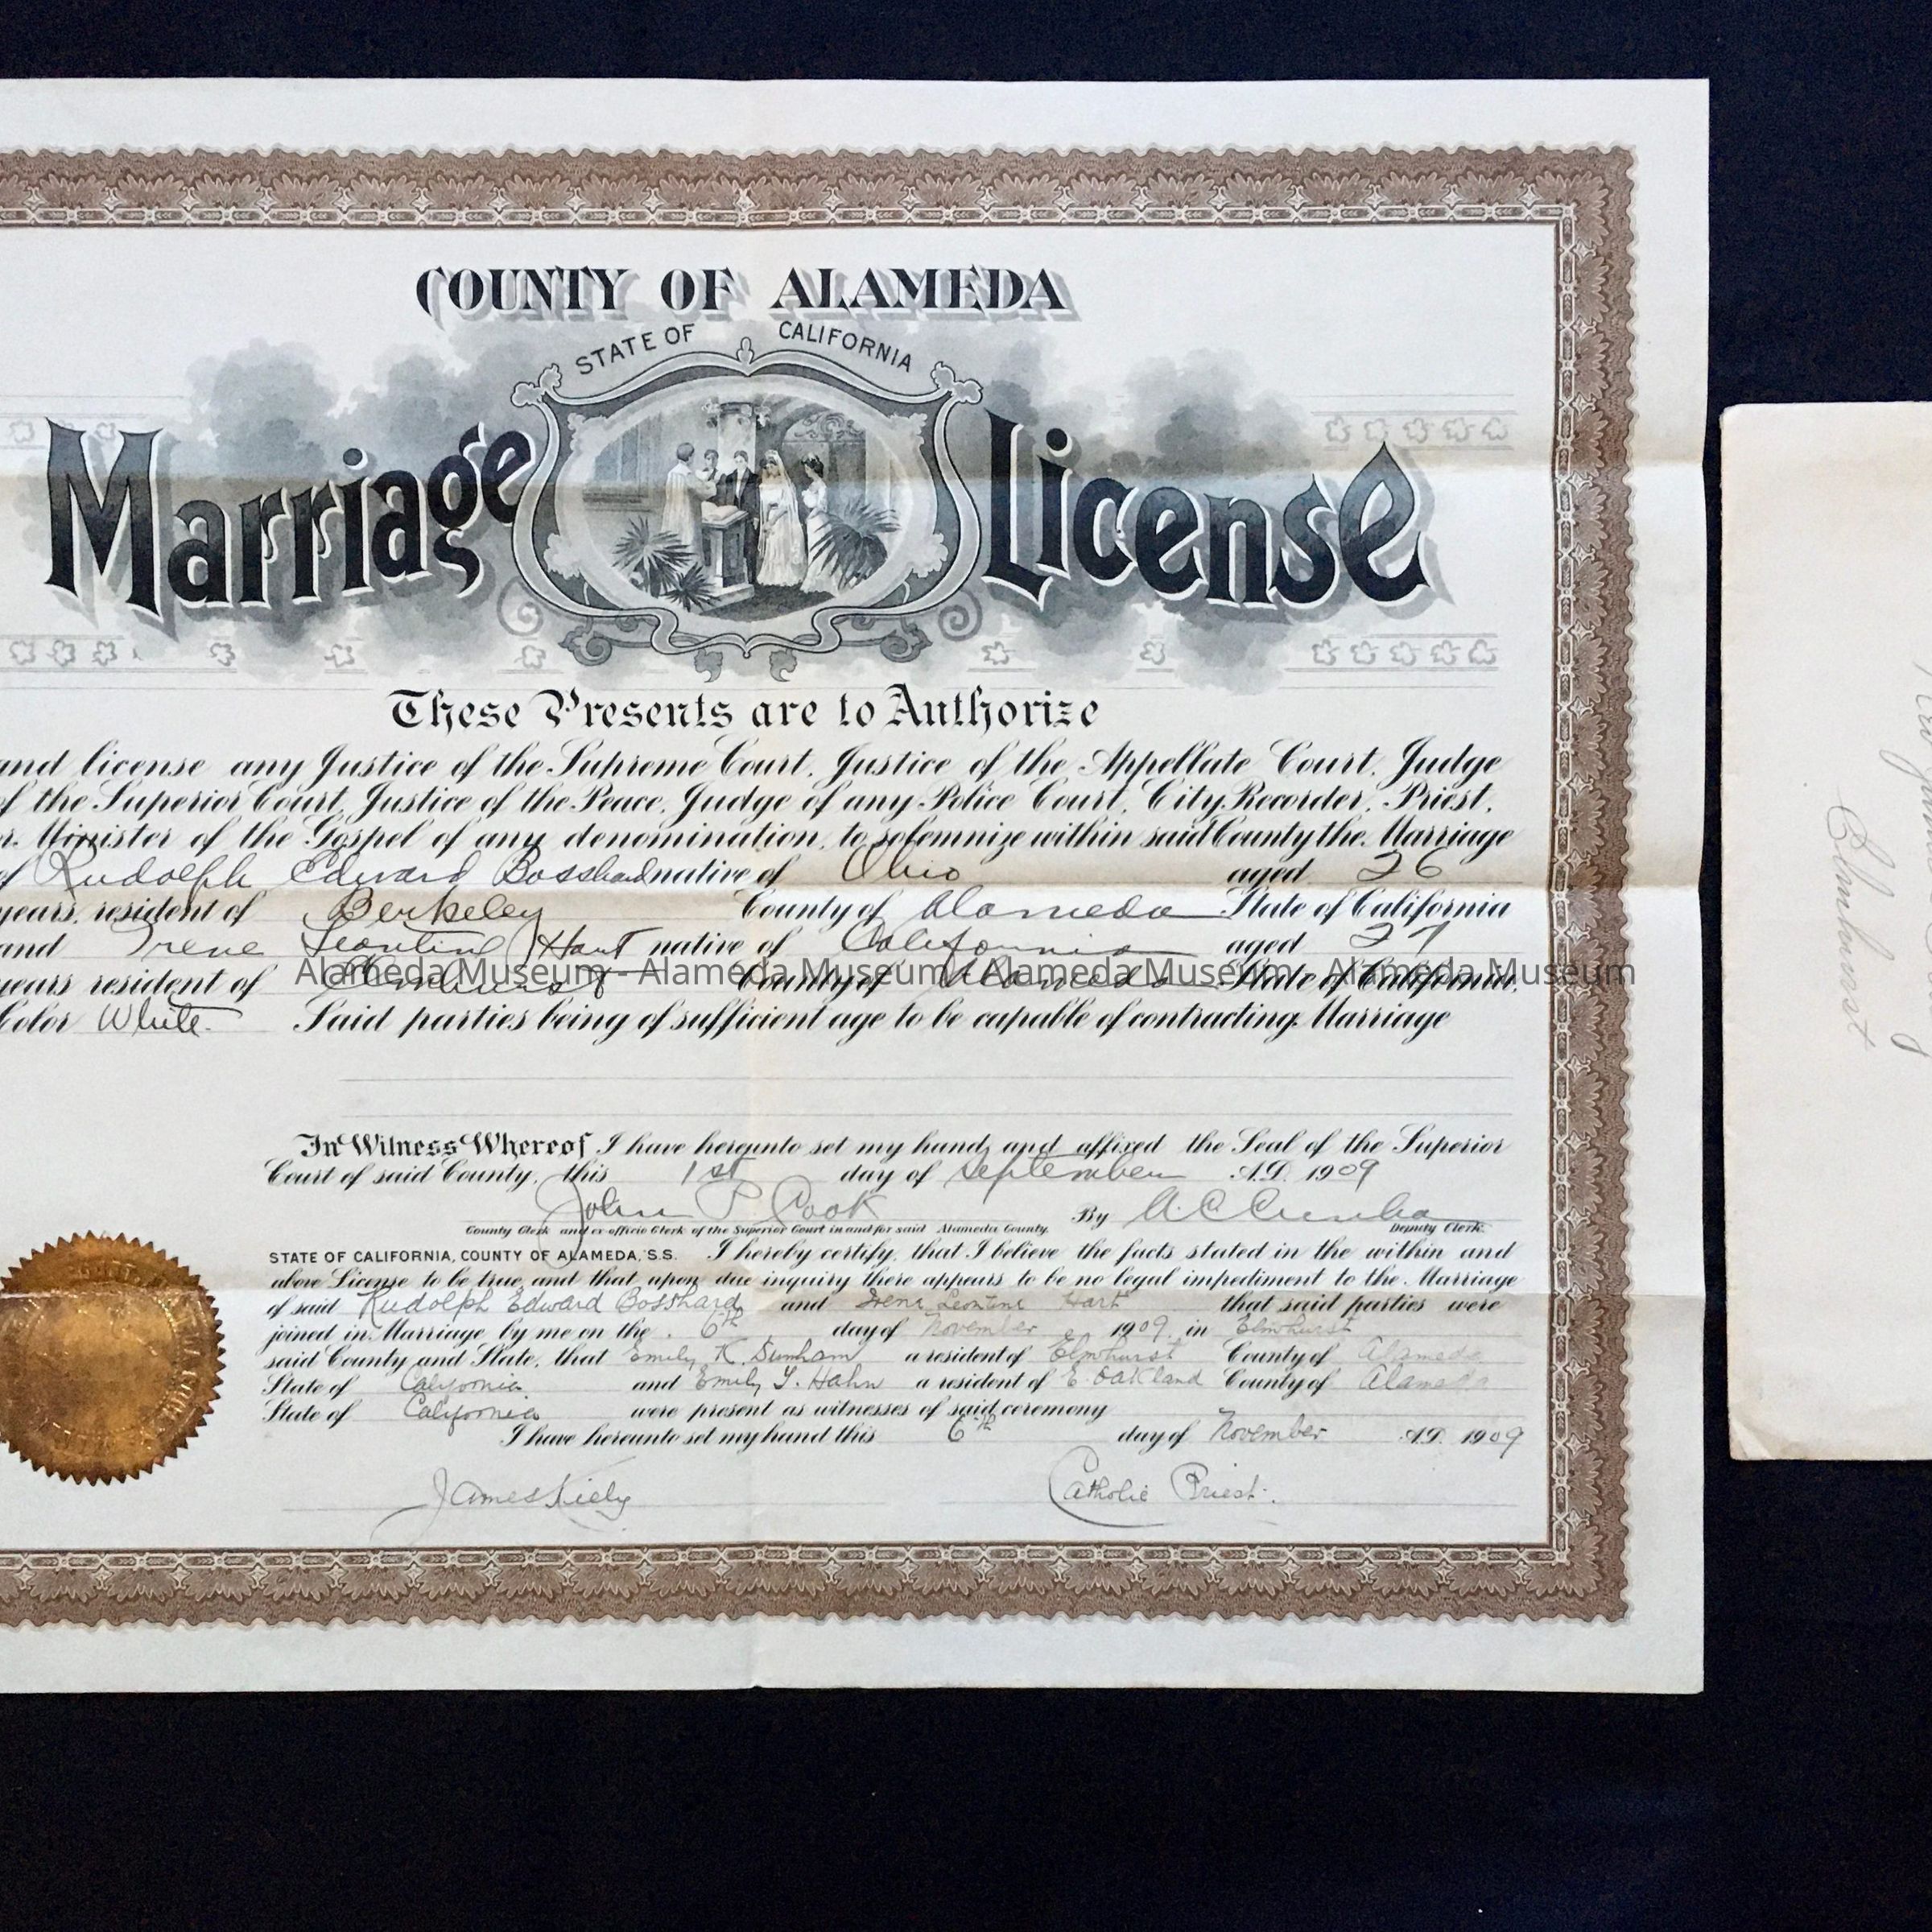 COUNTY OF ALAMEDA
STATE OF CALIFORNIA
Marriage License
These Presents are to Authorize
and license any Justice of the Supreme Court, Justice of the Appellate Court, Judge
of the Superior Court, Justice of the Peace, Judge of any Police Court, City Recorder, Priest,
or Minister of the Gospel of any denomination, to solemnize within said County the Marriage
of Rudolph Edward Bosshard native of Ohio aged 26
years, resident of Berkeley County of Alameda State of California
and Irene Leontine Hart native of California aged 27
years resident of Elmhurst County of Alameda State of California,
Alameda Museum - Alameda Museum - Alameda Museum - Alameda Museum
Color White Said parties being of sufficient age to be capable of contracting Marriage
In Witness Whereof I have hereunto set my hand, and affixed the Seal of the Superior
Court of said County, this 1st day of September A.D. 1909
John P. Cook By A C Cunha
County Clerk and ex-officio Clerk of the Superior Court in and for said Alameda County. Deputy Clerk.
STATE OF CALIFORNIA, COUNTY OF ALAMEDA, S.S. I hereby certify, that I believe the facts stated in the within and
above License to be true, and that upon due inquiry there appears to be no legal impediment to the Marriage
of said Rudolph Edward Bosshard and Irene Leontine Hart that said parties were
joined in Marriage by me on the 6th day of November 1909 in Elmhurst
said County and State, that Emily K. Dunham a resident of Elmhurst County of Alameda
State of California and Emily Y. Hahn a resident of E. Oakland County of Alameda
State of California were present as witnesses of said ceremony
I have hereunto set my hand this 6th day of November A.D. 1909
James Kiely Catholic Priest.
Elmhurst